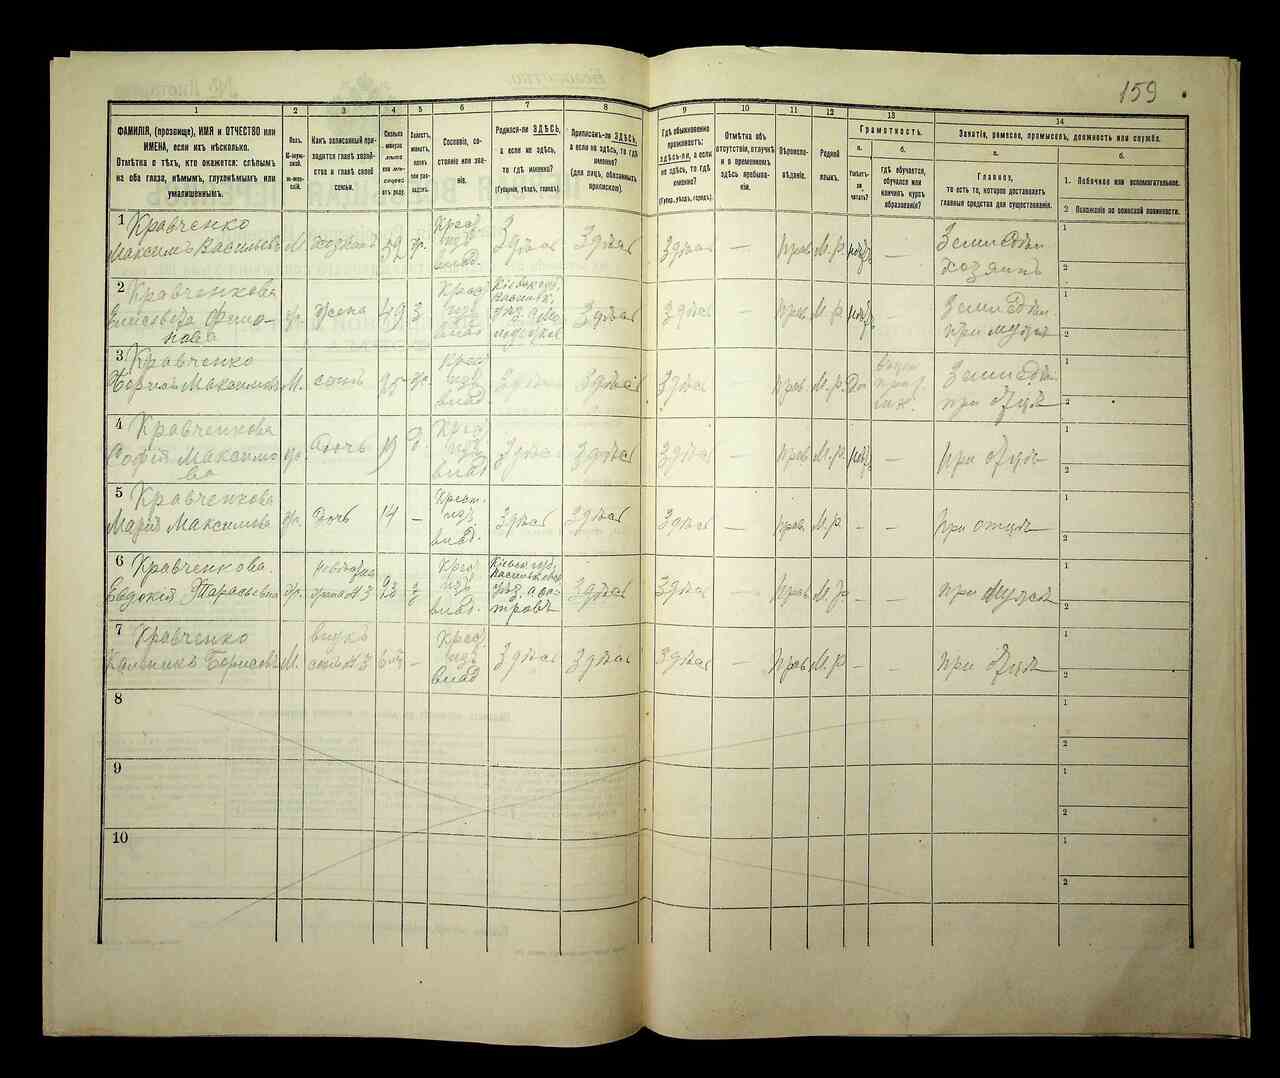 159
1 2 3 4 5 6 7 8 9 10 11 12 13 14
ФАМИЛІЯ, (прозвище), ИМЯ и ОТЧЕСТВО или
ИМЕНА, если ихъ нѣсколько.
Отмѣтка о тѣхъ, кто окажется: слѣпымъ
на оба глаза, нѣмымъ, глухонѣмымъ или
умалишеннымъ.
Полъ.
М-мужской.
Ж-женскій.
Какъ записанный при-
ходится главѣ хозяй-
ства и главѣ своей
семьи.
Сколько
минуло
лѣтъ
или мѣсяцевъ
отъ роду.
Холостъ,
женатъ,
вдовъ
или раз-
веденъ.
Сословіе, со-
стояніе или зва-
ніе.
Родился-ли ЗДѢСЬ,
а если не здѣсь,
то гдѣ именно?
(Губернія, уѣздъ, городъ).
Приписанъ-ли ЗДѢСЬ,
а если не здѣсь, то гдѣ
именно?
(для лицъ, обязанныхъ
припискою).
Гдѣ обыкновенно
проживаетъ:
здѣсь-ли, а если
не здѣсь, то гдѣ
именно?
(Губер., уѣздъ, городъ).
Отмѣтка объ
отсутствіи, отлучкѣ
и о временномъ
здѣсь пребыва-
ніи.
Вѣроиспо-
вѣданіе.
Родной
языкъ.
Грамотность.
а.
Умѣетъ-
ли
читать?
б.
гдѣ обучается,
обучался или
кончилъ курсъ
образованія?
Занятіе, ремесло, промыселъ, должность или служба.
а.
Главное,
то есть то, которое доставляетъ
главныя средства для существованія.
б.
1. Побочное или вспомогательное.
2 Положеніе по воинской повинности.
1 Кравченко
Максимъ Васильевъ М. хозяинъ 52 ж. Крест. изъ влад. Здѣсь Здѣсь Здѣсь — Прав. М.Р. нѣтъ — Земледѣл. хозяинъ
1
2
2 Кравченкова
Елисавета жена 49 з Крест. изъ влад. Здѣсь Здѣсь — Прав. М.Р. нѣтъ — Земледѣл. при мужѣ
1
2
3 Кравченко
Борисъ Максимовъ М. сынъ 25 ж. Крест. изъ влад. Здѣсь Здѣсь Здѣсь — Прав. М.Р. Да Земледѣл. при отцѣ
1
2
4 Кравченкова
Софія Максимова ж. дочь 19 Крест. изъ влад. Здѣсь Здѣсь Здѣсь — Прав. М.Р. нѣтъ — при отцѣ
1
2
5 Кравченкова
Марія Максимова ж. дочь 14 — Крест. изъ влад. Здѣсь Здѣсь Здѣсь — Прав. М.Р. — — при отцѣ
1
2
6 Кравченкова.
Евдокія Тарасьевна ж. невѣстка жена № 3 23 з Крес. изъ влад. Здѣсь Здѣсь — Прав. М.Р. — — при мужѣ
1
2
7 Кравченко
Борисовъ М. внукъ сынъ № 3 — Крест. изъ влад Здѣсь Здѣсь Здѣсь — Прав. М.Р. — — при отцѣ
1
2
8
1
2
9
1
2
10
1
2